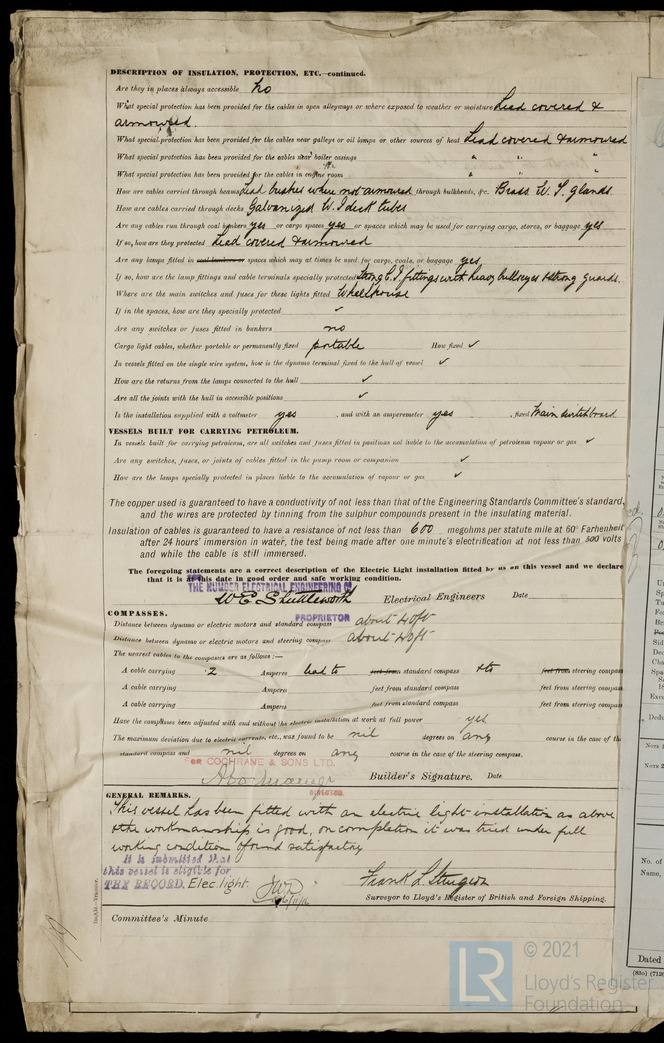 DESCRIPTION OF INSULATION, PROTECTION, ETC.—continued.
Are they in places always accessible no
What special protection has been provided for the cables in open alleyways or where exposed to weather or moisture Lead covered &
armoured.
What special protection has been provided for the cables near galleys or oil lamps or other sources of heat Lead covered & armoured
What special protection has been provided for the cables near boiler casings " " "
What special protection has been provided for the cables in engine room " " "
How are cables carried through beams Lead bushes where not armoured through bulkheads, &c. Brass W. T. glands.
How are cables carried through decks Galvanized W. I deck tubes
Are any cables run through coal bunkers yes or cargo spaces yes or spaces which may be used for carrying cargo, stores, or baggage yes
If so, how are they protected Lead covered & armoured
Are any lamps fitted in coal bunkers or spaces which may at times be used for cargo, coals, or baggage yes
If so, how are the lamp fittings and cable terminals specially protected Strong C. I fittings with heavy bullseyes & strong guards.
Where are the main switches and fuses for these lights fitted Wheelhouse
If in the spaces, how are they specially protected ✓
Are any switches or fuses fitted in bunkers no
Cargo light cables, whether portable or permanently fixed portable How fixed ✓
In vessels fitted on the single wire system, how is the dynamo terminal fixed to the hull of vessel ✓
How are the returns from the lamps connected to the hull ✓
Are all the joints with the hull in accessible positions ✓
Is the installation supplied with a voltmeter yes , and with an amperemeter yes , fixed Main switchboard
VESSELS BUILT FOR CARRYING PETROLEUM.
In vessels built for carrying petroleum, are all switches and fuses fitted in positions not liable to the accumulation of petroleum vapour or gas ✓
Are any switches, fuses, or joints of cables fitted in the pump room or companion ✓
How are the lamps specially protected in places liable to the accumulation of vapour or gas ✓
The copper used is guaranteed to have a conductivity of not less than that of the Engineering Standards Committee's standard,
and the wires are protected by tinning from the sulphur compounds present in the insulating material.
Insulation of cables is guaranteed to have a resistance of not less than 600 megohms per statute mile at 60° Farhenheit
after 24 hours' immersion in water, the test being made after one minute's electrification at not less than 500 volts
and while the cable is still immersed.
The foregoing statements are a correct description of the Electric Light installation fitted by us on this vessel and we declare
that it is at this date in good order and safe working condition.
THE HUMBER ELECTRICAL ENGINEERING Co
W E Shuttleworth Electrical Engineers Date
PROPRIETOR
COMPASSES.
Distance between dynamo or electric motors and standard compass about 40ft
Distance between dynamo or electric motors and steering compass about 40ft
The nearest cables to the compasses are as follows:—
A cable carrying 2 Amperes lead to feet from standard compass & to feet from steering compass
A cable carrying Amperes feet from standard compass feet from steering compass
A cable carrying Amperes feet from standard compass feet from steering compass
Have the compasses been adjusted with and without the electric installation at work at full power yes
The maximum deviation due to electric currents, etc., was found to be nil degrees on any course in the case of the
standard compass and nil degrees on any course in the case of the steering compass.
FOR COCHRANE & SONS LTD.
Builder's Signature. Date
DIRECTOR.
GENERAL REMARKS.
This vessel has been fitted with an electric light installation as above
& the workmanship is good, on completion it was tried under full
working condition & found satisfactory
It is submitted that
this vessel is eligible for
THE RECORD. Elec. light.
Frank L Sturgeon
Surveyor to Lloyd's Register of British and Foreign Shipping.
Committee's Minute
© 2021
LR
Lloyd's Register
Foundation
NOTE 1
NOTE 2
No. of
Name,
Dated